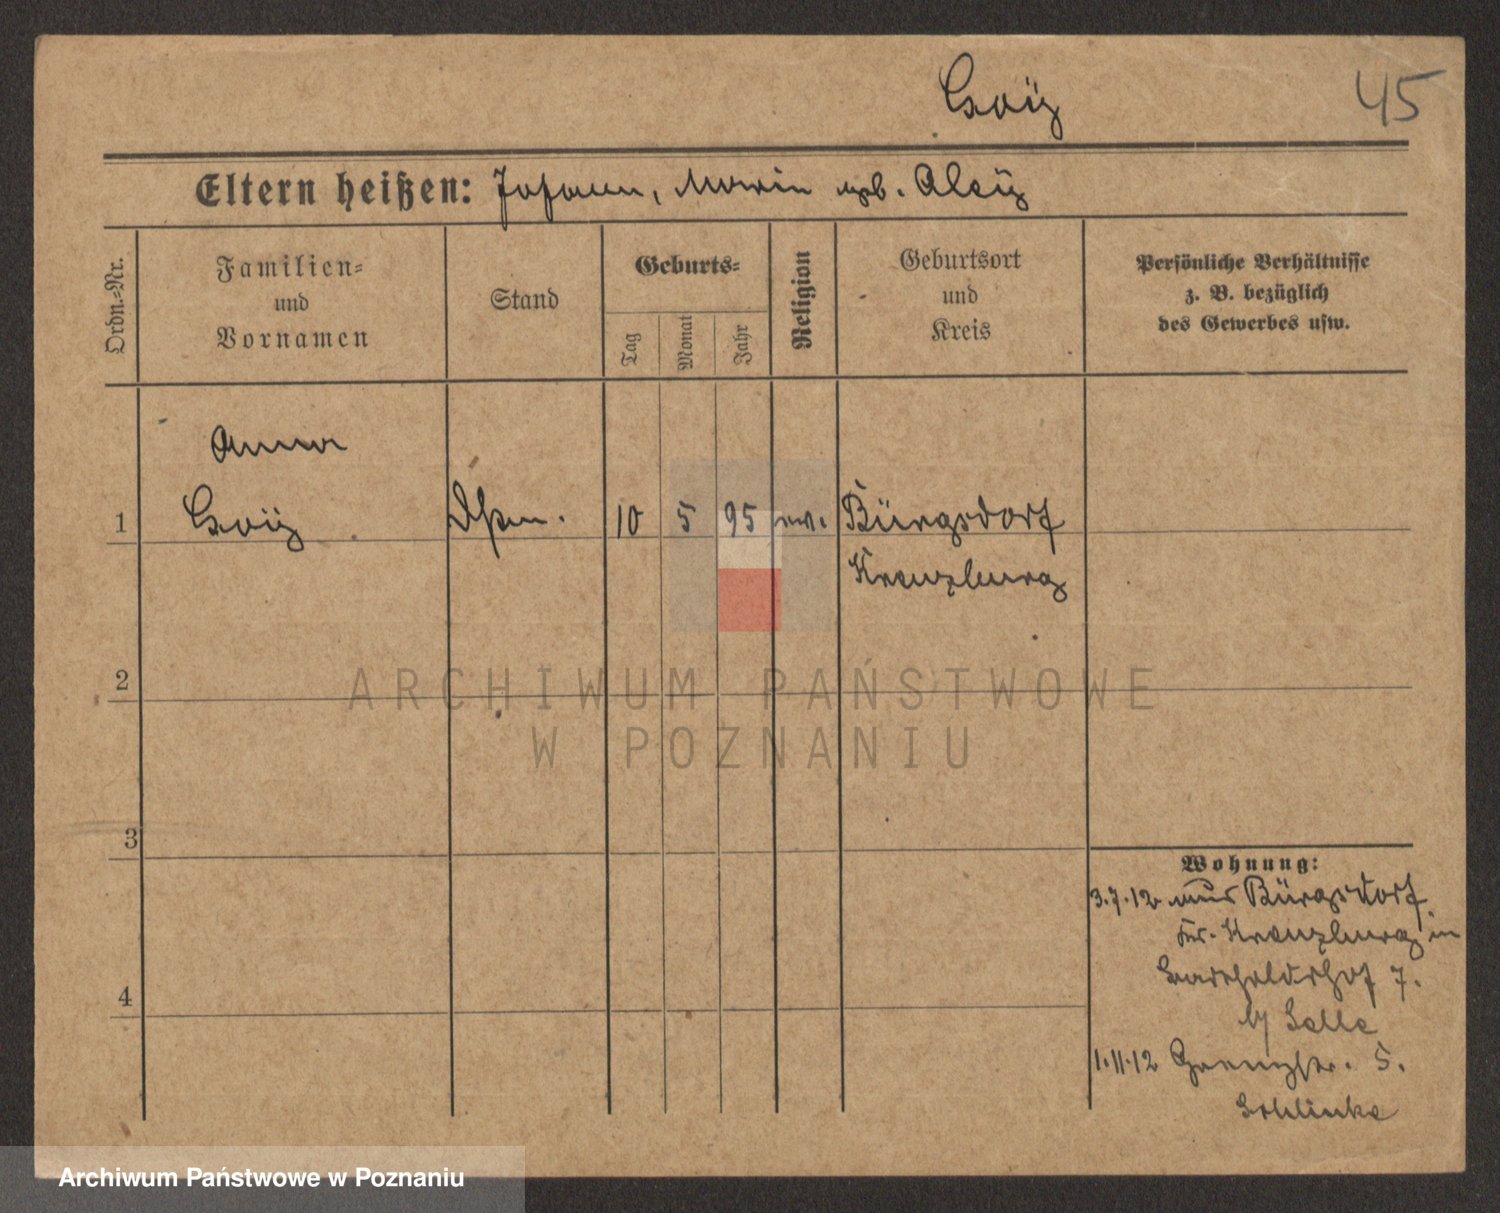 45
Eltern heißen: Johann, Maria geb. Aleÿ
Ordn.=Nr.
Familien=
und
Vornamen
Stand
Geburts=
Tag
Monat
Jahr
Religion
Geburtsort
und
Kreis
Persönliche Verhältnisse
z. B. bezüglich
des Gewerbes usw.
Anna
1
10 5 95 ev. Bürgsdorf
Kreuzburg
2
ARCHIWUM PAŃSTWOWE
W POZNANIU
3
Wohnung:
3.7.12 aus Bürgsdorf
Kr. Kreuzburg in
7.
4
1.11.12 Grenzstr. 5.
Archiwum Państwowe w Poznaniu